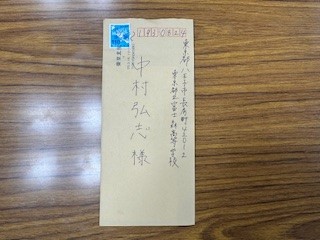 1930824
東京都八王子市長房町420-2
東京都立富士森高等学校
中村弘志様